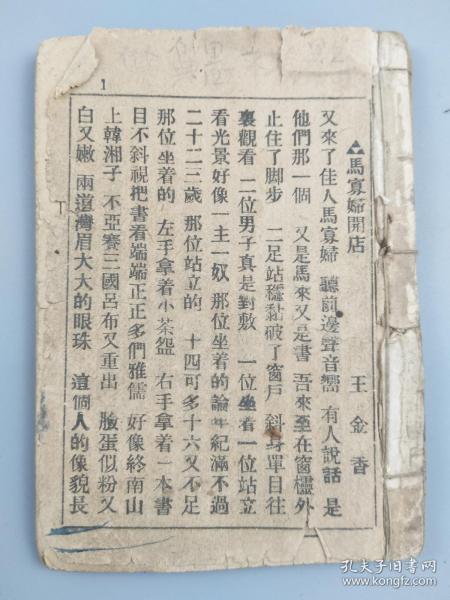 ▲馬寡婦開店
王金香
又來了佳人馬寡婦 聽前邊聲音嚮 有人說話 是
他們那一個 又是馬來又是書 吾來至在窗櫺外
止住了脚步 二足站穩黏破了窗戶 斜身單目往
裏觀看 二位男子真是對敷 一位坐着一位站立
看光景好像一主一奴 那位坐着的論年紀滿不過
二十二三歲 那位站立的 十四可多十六又不足
那位坐着的 左手拿着小茶盌 右手拿着一本書
目不斜視把書看端端正正多們雅儒 好像終南山
上韓湘子 不亞賽三國呂布又重出 臉蛋似粉又
白又嫩 兩道灣眉大大的眼珠 這個人的像貌長
1
孔夫子旧书网
www.kongfz.com